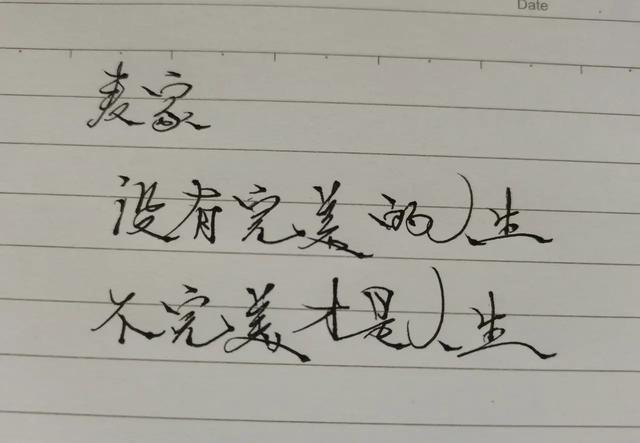 Date
麦家
没有完美的人生
不完美才是人生